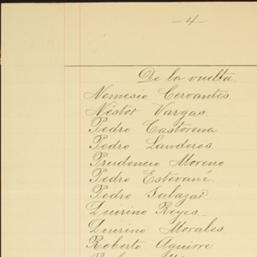 —4—
De la vuelta
Nemesio Cervantes
Néstor Vargas
Pedro Castorena
Pedro Landeros
Prudencio Moreno
Pedro Estevané
Pedro Salazar
Quirino Reyes
Quirino Morales
Roberto Aguirre